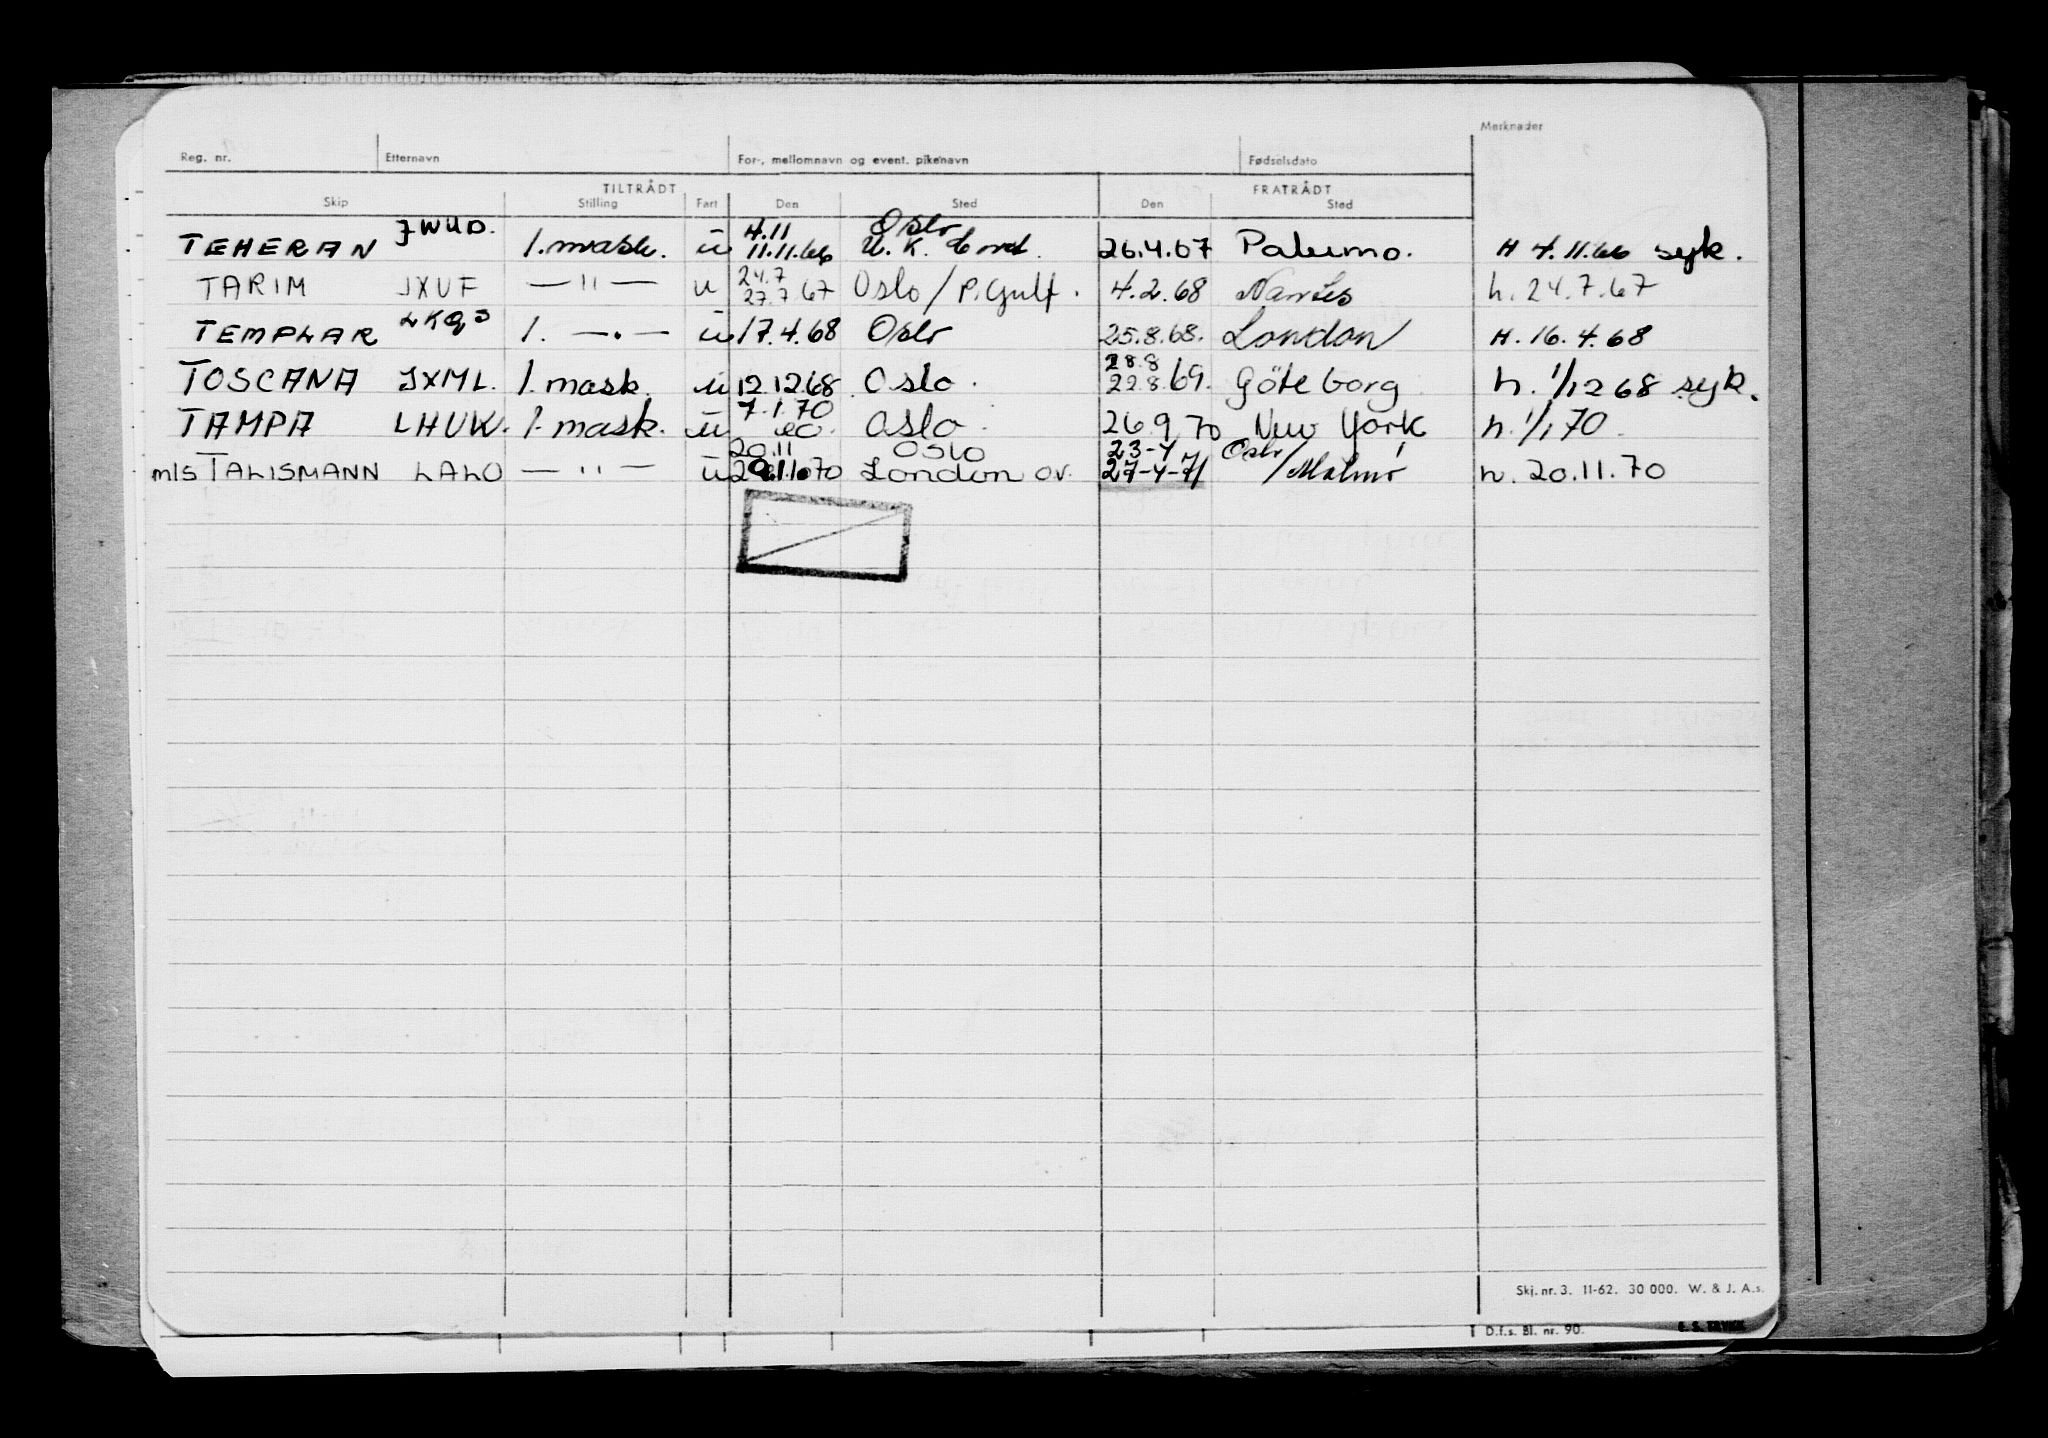 Merknader
Reg. nr. Etternavn For-, mellomnavn og event. pikenavn Fødselsdato
TILTRÅDT FRATRÅDT
Skip Stilling Fart Den Sted Den Sted
JWUD. 4.11 Oslo
TEHERAN 1. mask. u 11.11.66 U.K. Cont. 26.4.67 Palermo. H 4.11.66 syk.
24.7
TARIM JXUF — " — u 27.7 67 Oslo / P. Gulf. 4.2.68 Nantes h. 24.7.67
TEMPLAR LKQJ 1. — . — u 17.4.68 Oslo 25.8.68. London H. 16.4.68
28.8
TOSCANA JXML. 1. mask. u 12.12.68 Oslo. 22.8.69. Göteborg h. 1/12 68 syk.
7.1.70
TAMPA LHUK. 1. mask. u Oslo. 26.9.70 New York h. 1/1 70.
20.11 Oslo 23-4 Oslo/
m/s TALISMANN LALO — " — u .11.70 London ov. 27-4-71 /Malmø h. 20.11.70
Skj. nr. 3. 11-62. 30 000. W. & J. A.s.
D.f.s. Bl. nr. 90.